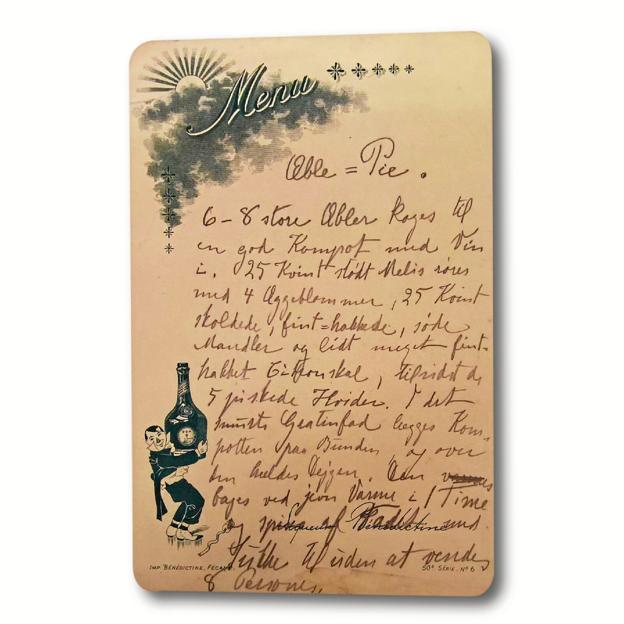 Menu
Æble = Pie.
6-8 store Æbler koges til
en god Kompot med Vin
i. 25 Kvint stødt Melis røres
med 4 Æggeblommer, 25 Kvint
skoldede, fint=hakkede, søde
Mandler og lidt meget fint-
hakket Citronskal, tilsidst de
5 piskede Hvider. I det
Gratinfad lægges Kom-
potten paa Bunden, og over
den hældes Dejgen. Den
bages ved jevn Varme i 1 Time
og
til uden at vendes
8 Personer.
Bénédictine
IMP. BÉNÉDICTINE, FÉCAMP.
50e SÉRIE. No 6